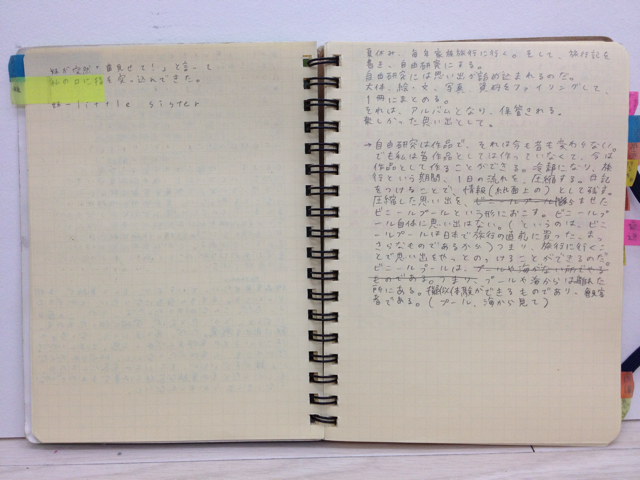 妹が突然“歯見せて！”って言って
私の口に指を突っ込んできた。
妹-little sister
夏休み、毎年家族旅行に行く。そして、旅行記を
書き、自由研究にする。
自由研究には思い出が詰め込まれるのだ。
大体、絵・文、写真、資料をファイリングして、
1冊にまとめる。
それは、アルバムとなり、保管される。
楽しかった思い出として。
→自由研究は作品で、それは今も昔も変わりない。
でも私は昔作品としては作っていなくて、今は
作品として作ることができる。冷静になり、旅
行という期間、1日の流れを、圧縮する。日記
をつけることで、情報(紙面上の)として残す。
圧縮した思い出を、ビニールプール膨らませた
ビニールプールという形におこす。ビニールプー
ル自体に思い出はない。(というのは、ビニ
ールプールは日本で旅行の直前に買った、まっ
さらなものであるから)つまり、旅行に行くこ
とで思い出をやっとのっけることができるのだ。
ビニールプールは、プールや海がない所でやる
ものである。つまり、プールや海からは離れた
所にある。擬似体験ができるものであり、
者である。(プール、海から見て)